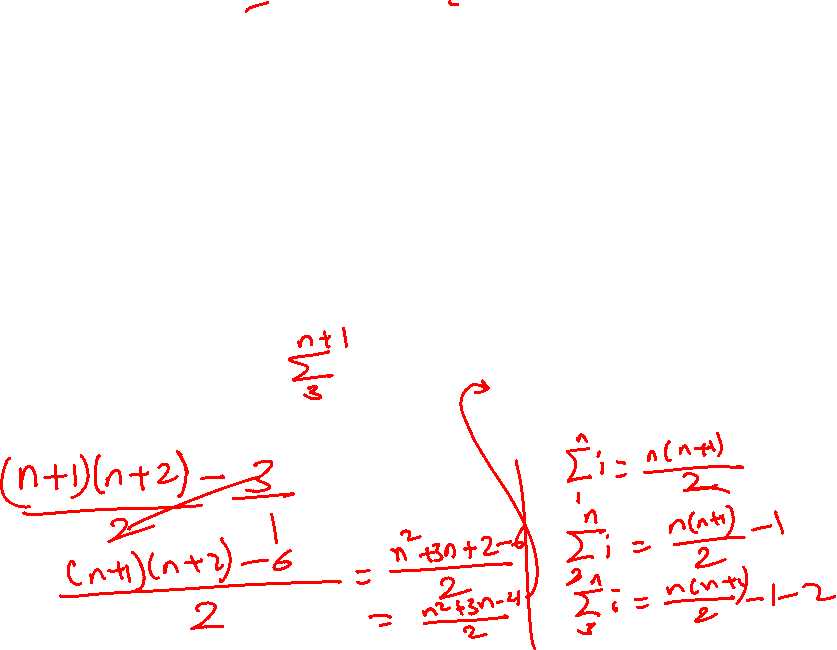 n+1
∑
3
(n+1)(n+2)/2 - 3/1
((n+1)(n+2) - 6)/2 = (n²+3n+2-6)/2
= (n²+3n-4)/2
∑_{1}^{n} i = n(n+1)/2
∑_{2}^{n} i = n(n+1)/2 - 1
∑_{3}^{n} i = n(n+1)/2 - 1 - 2